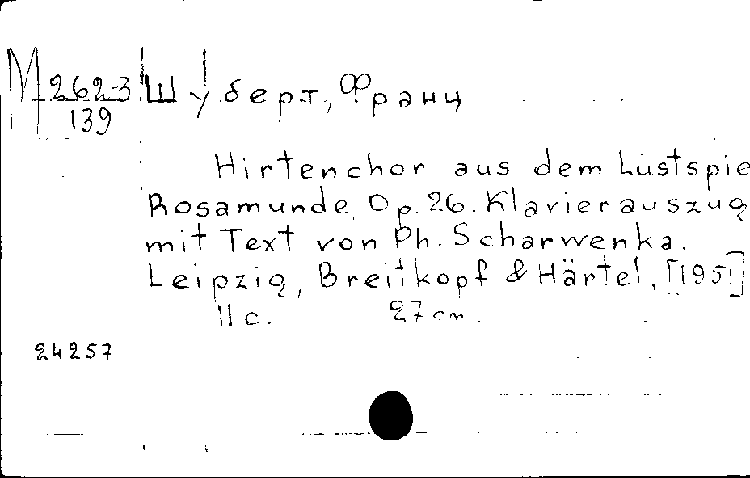 М 262-3 Шуберт, Франц
139
Hirtenchor aus dem Lustspie
Rosamunde, Op. 26. Klavierauszug
mit Text von Ph. Scharwenka.
Leipzig, Breitkopf & Härtel, [195]
11 с. 27 cm.
24257